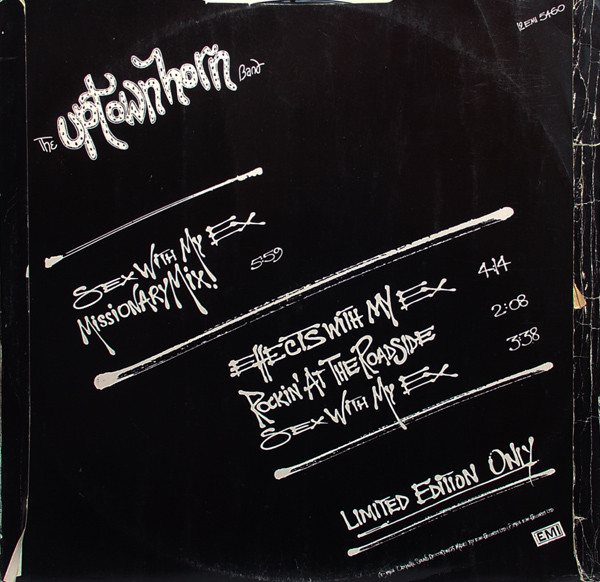 12EMI 5460
The uptownhorn Band
SEX WITH MY EX
MISSIONARY MIX! 5:59
EFFECTS WITH MY EX 4:14
ROCKIN' AT THE ROADSIDE 2:08
SEX WITH MY EX 3:38
LIMITED EDITION ONLY
EMI